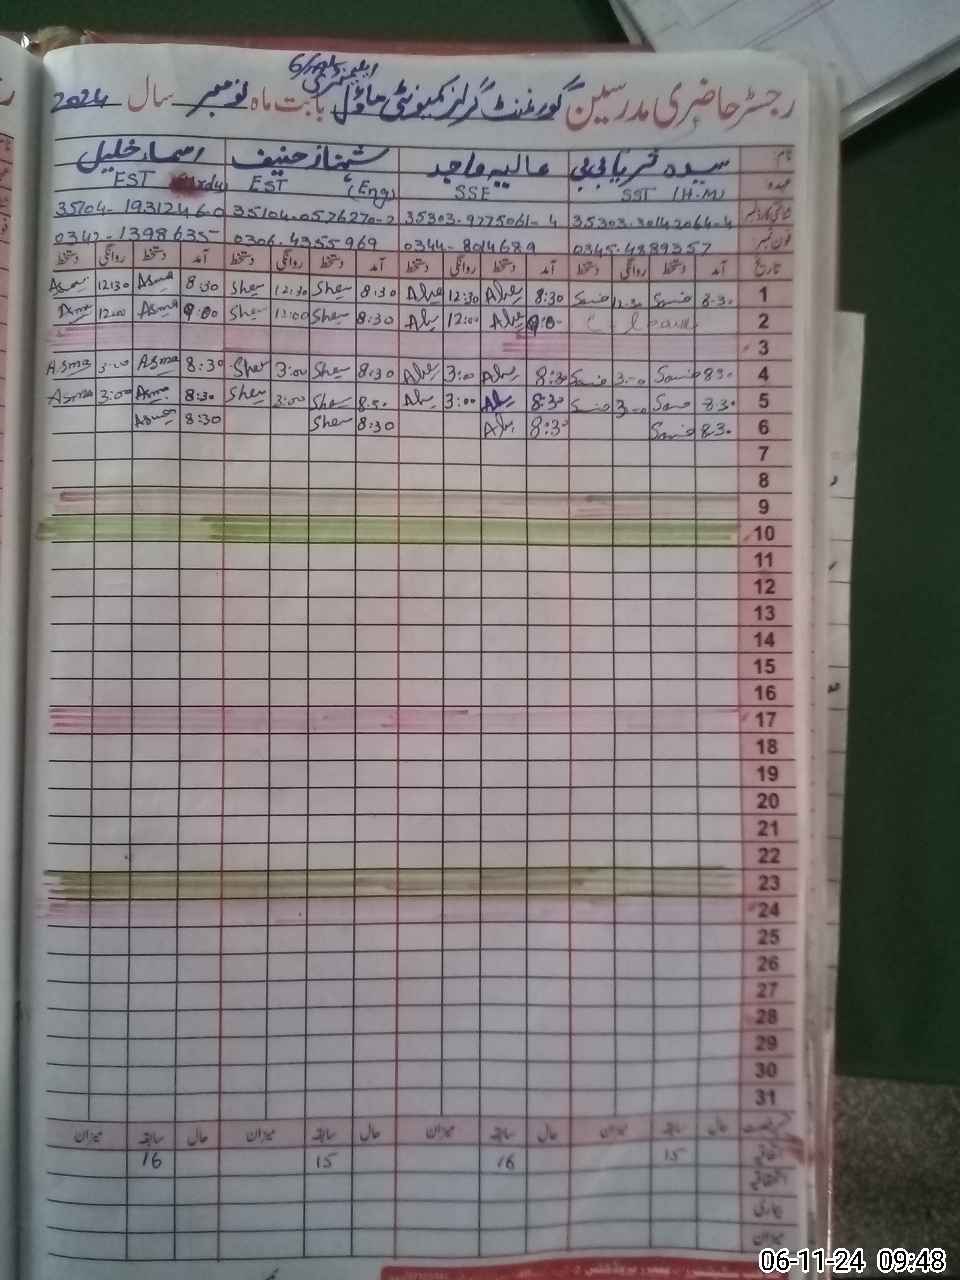 رجسٹر حاضری مدرسین گورنمنٹ گرلز کمیونٹی ماڈل ایلیمنٹری بابت ماہ نومبر سال 2024
نام سیدہ قریابی بی عالیہ واجد شہناز حنیف اسماء خلیل
عہدہ SST (H.M) SSE EST (Eng) EST Urdu
شناختی کارڈ نمبر 35303-30142064-4 35303-9775061-4 35104-0576270-2 35104-1931246-0
فون نمبر 0345-4889357 0344-8014689 0306-4355969 0342-1398635
تاریخ آمد دستخط روانگی دستخط آمد دستخط روانگی دستخط آمد دستخط روانگی دستخط آمد دستخط روانگی دستخط
1 8:30 12:30 8:30 12:30 8:30 She 12:30 She 8:30 Asma 12:30 Asma
2 C leave 9:00 12:00 8:30 She 12:00 She 9:00 Asma 12:00 Asma
3
4 8:30 3:00 8:30 3:00 8:30 She 3:00 She 8:30 Asma 3:00 Asma
5 8:30 3:00 8:30 3:00 8:30 She 3:00 She 8:30 Asma 3:00 Asma
6 8:30 8:30 8:30 She 8:30 Asma
7
8
9
10
11
12
13
14
15
16
17
18
19
20
21
22
23
24
25
26
27
28
29
30
31
حال سابقہ میزان حال سابقہ میزان حال سابقہ میزان حال سابقہ میزان
اتفاقیہ 15 16 15 16
میزان
06-11-24 09:48